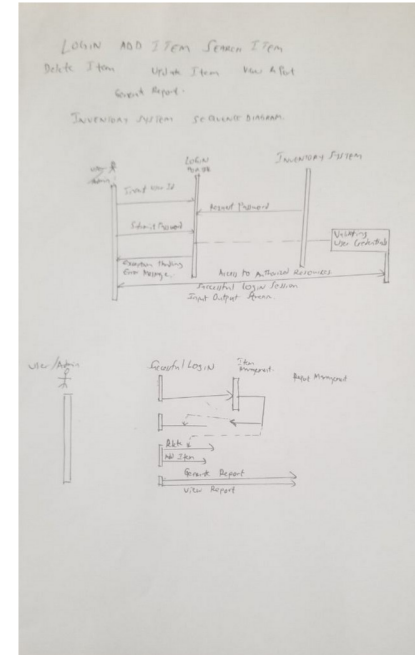 LOGIN ADD ITEM SEARCH ITEM
Delete Item Update Item View Report
Generate Report.
INVENTORY SYSTEM SEQUENCE DIAGRAM.
LOGIN
INVENTORY SYSTEM
User
Admin
Request Password
Submit Password
Validating
User Credentials
Exception Handling
Error Message
Access to Authorized Resources
Successful login Session
Input Output Stream
User/Admin
Successful LogIN
Item
Management
Report Management
Add Item
Generate Report
View Report